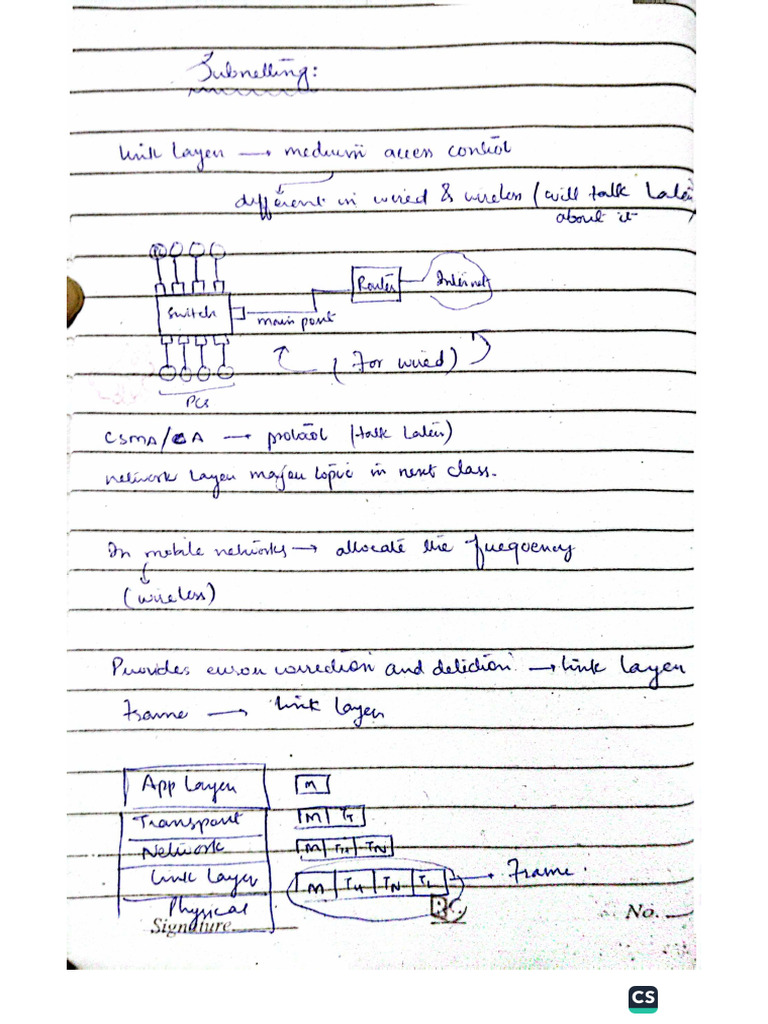 Subnetting:
Link Layer → medium access control
different in wired & wireless (will talk Later
about it)
Router
Internet
Switch
main port
(For wired)
PCs
CSMA/CA → protocol (talk Later)
network Layer major topic in next class.
In mobile networks → allocate the frequency
(wireless)
Provides error correction and detection → link layer
Frame → link layer
App Layer M
Transport M
Network M TH TN
Link Layer M TH TN TL → Frame.
Physical
Signature No.
CS